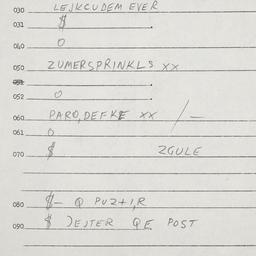 030 LEJKCUDEM EVER
031 $
040 O
050 ZUMERSPRINKLS XX
051
052 O
060 PARO, DEFKE XX / —
061 O
070 $ ZGULE
080 $— Q PUZ+1,R
090 $ JEJTER QE POST